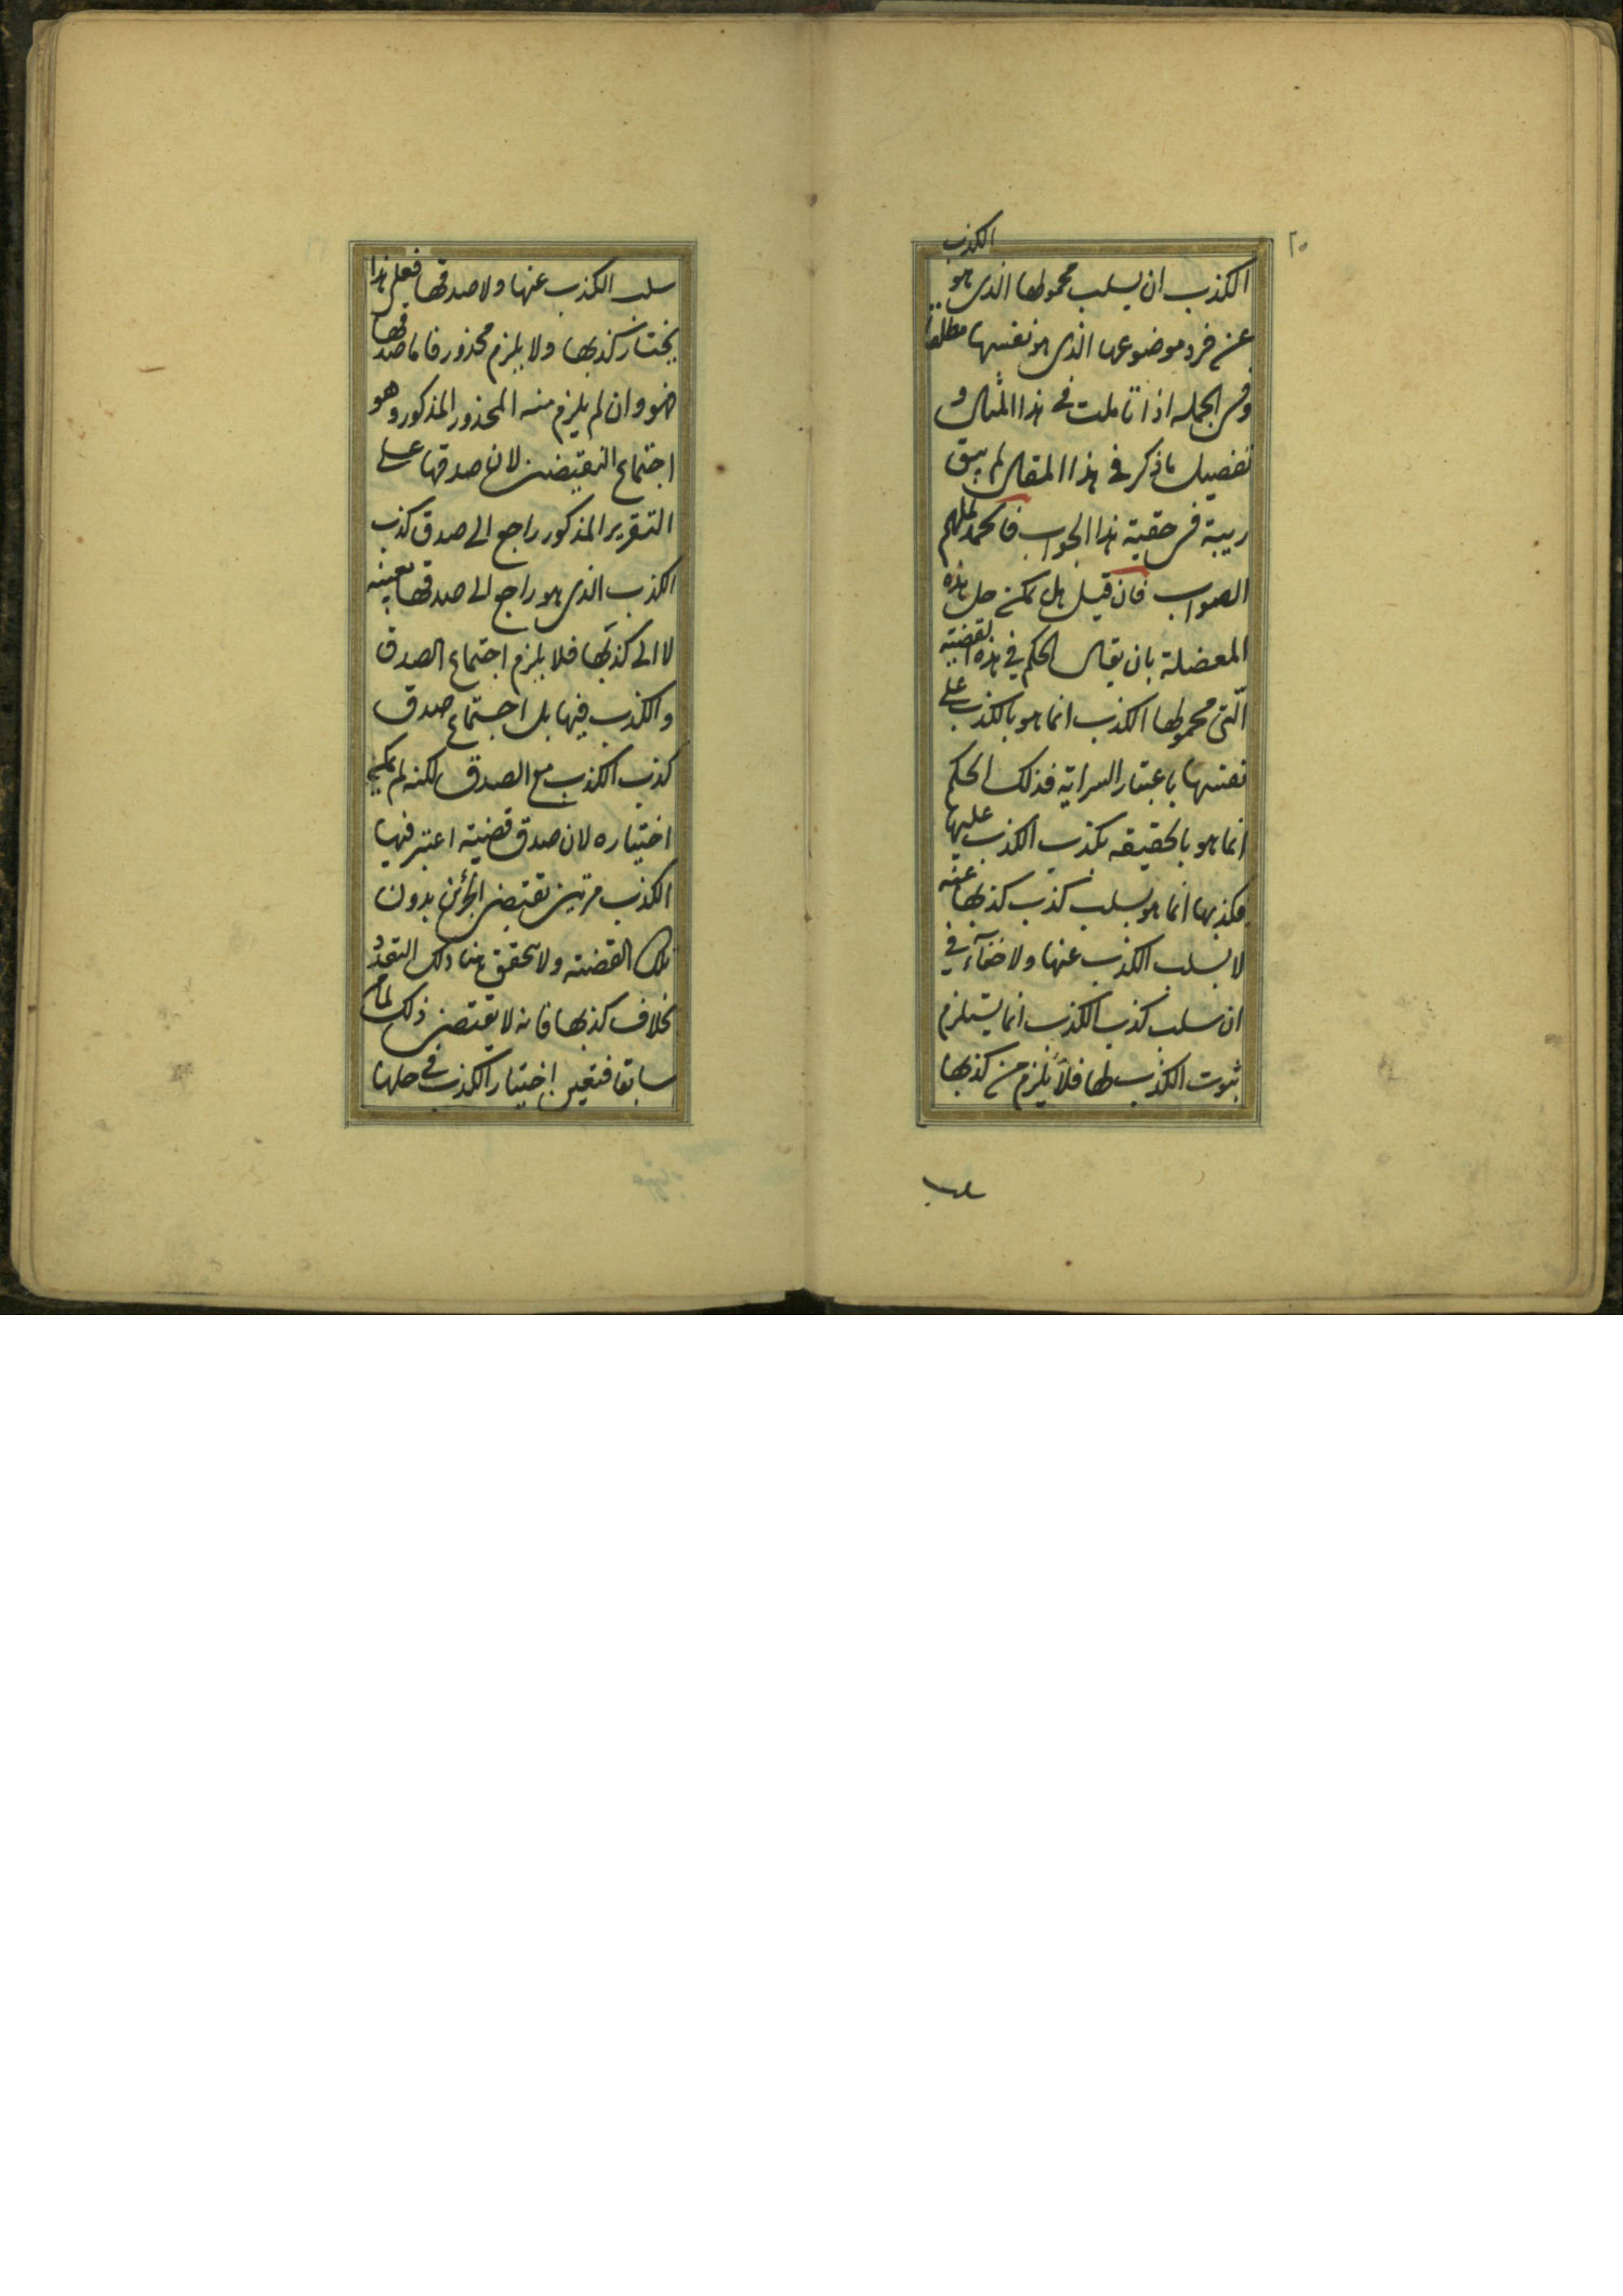 ٢٠
الكذب
الكذب ان يسلب محمولها الذى هو
عن فرد موضوعها الذى هو نفسها مطلقا
وفى الجمله اذا تاملت فى هذا المثال و
تفصيل ما ذكر فى هذا المقال لم يبق
ريبة فى حقية هذا الجواب فالحمد لملهم
الصواب فان قيل هل يمكن حل هذه
المعضلة بان يقال الحكم فى هذه القضية
الّتى محمولها الكذب انما هو بالكذب على
نفسها باعتبار السراية فذلك الحكم
انما هو بالحقيقه بكذب الكذب عليها
فكذبها انما هو بسلب كذب كذبها عنه
لا بسلب الكذب عنها ولا خفآء فى
ان سلب كذب الكذب انما يستلزم
ثبوت الكذب لها فلا يلزم من كذبها
سلب
سلب الكذب عنها ولا صدقها فعلى هذا
يختار كذبها ولا يلزم محذور فاما صدقها
فهو وان لم يلزم منه المحذور المذكور وهو
اجتماع النقيضين لان صدقها على
التقرير المذكور راجع الى صدق كذب
الكذب الذى هو راجع الى صدقها بعينه
لا الى كذبها فلا يلزم اجتماع الصدق
والكذب فيها بل اجتماع صدق
كذب الكذب مع الصدق لكنه لم يمكن
اختياره لان صدق قضية اعتبر فيها
الكذب مرتين يقتضى بدون
تلك القضية ولا تحقق هنا ذلك التعدد
بخلاف كذبها فانه لا يقتضى ذلك لما مر
سابقا فتعين اختيار الكذب فى حلها